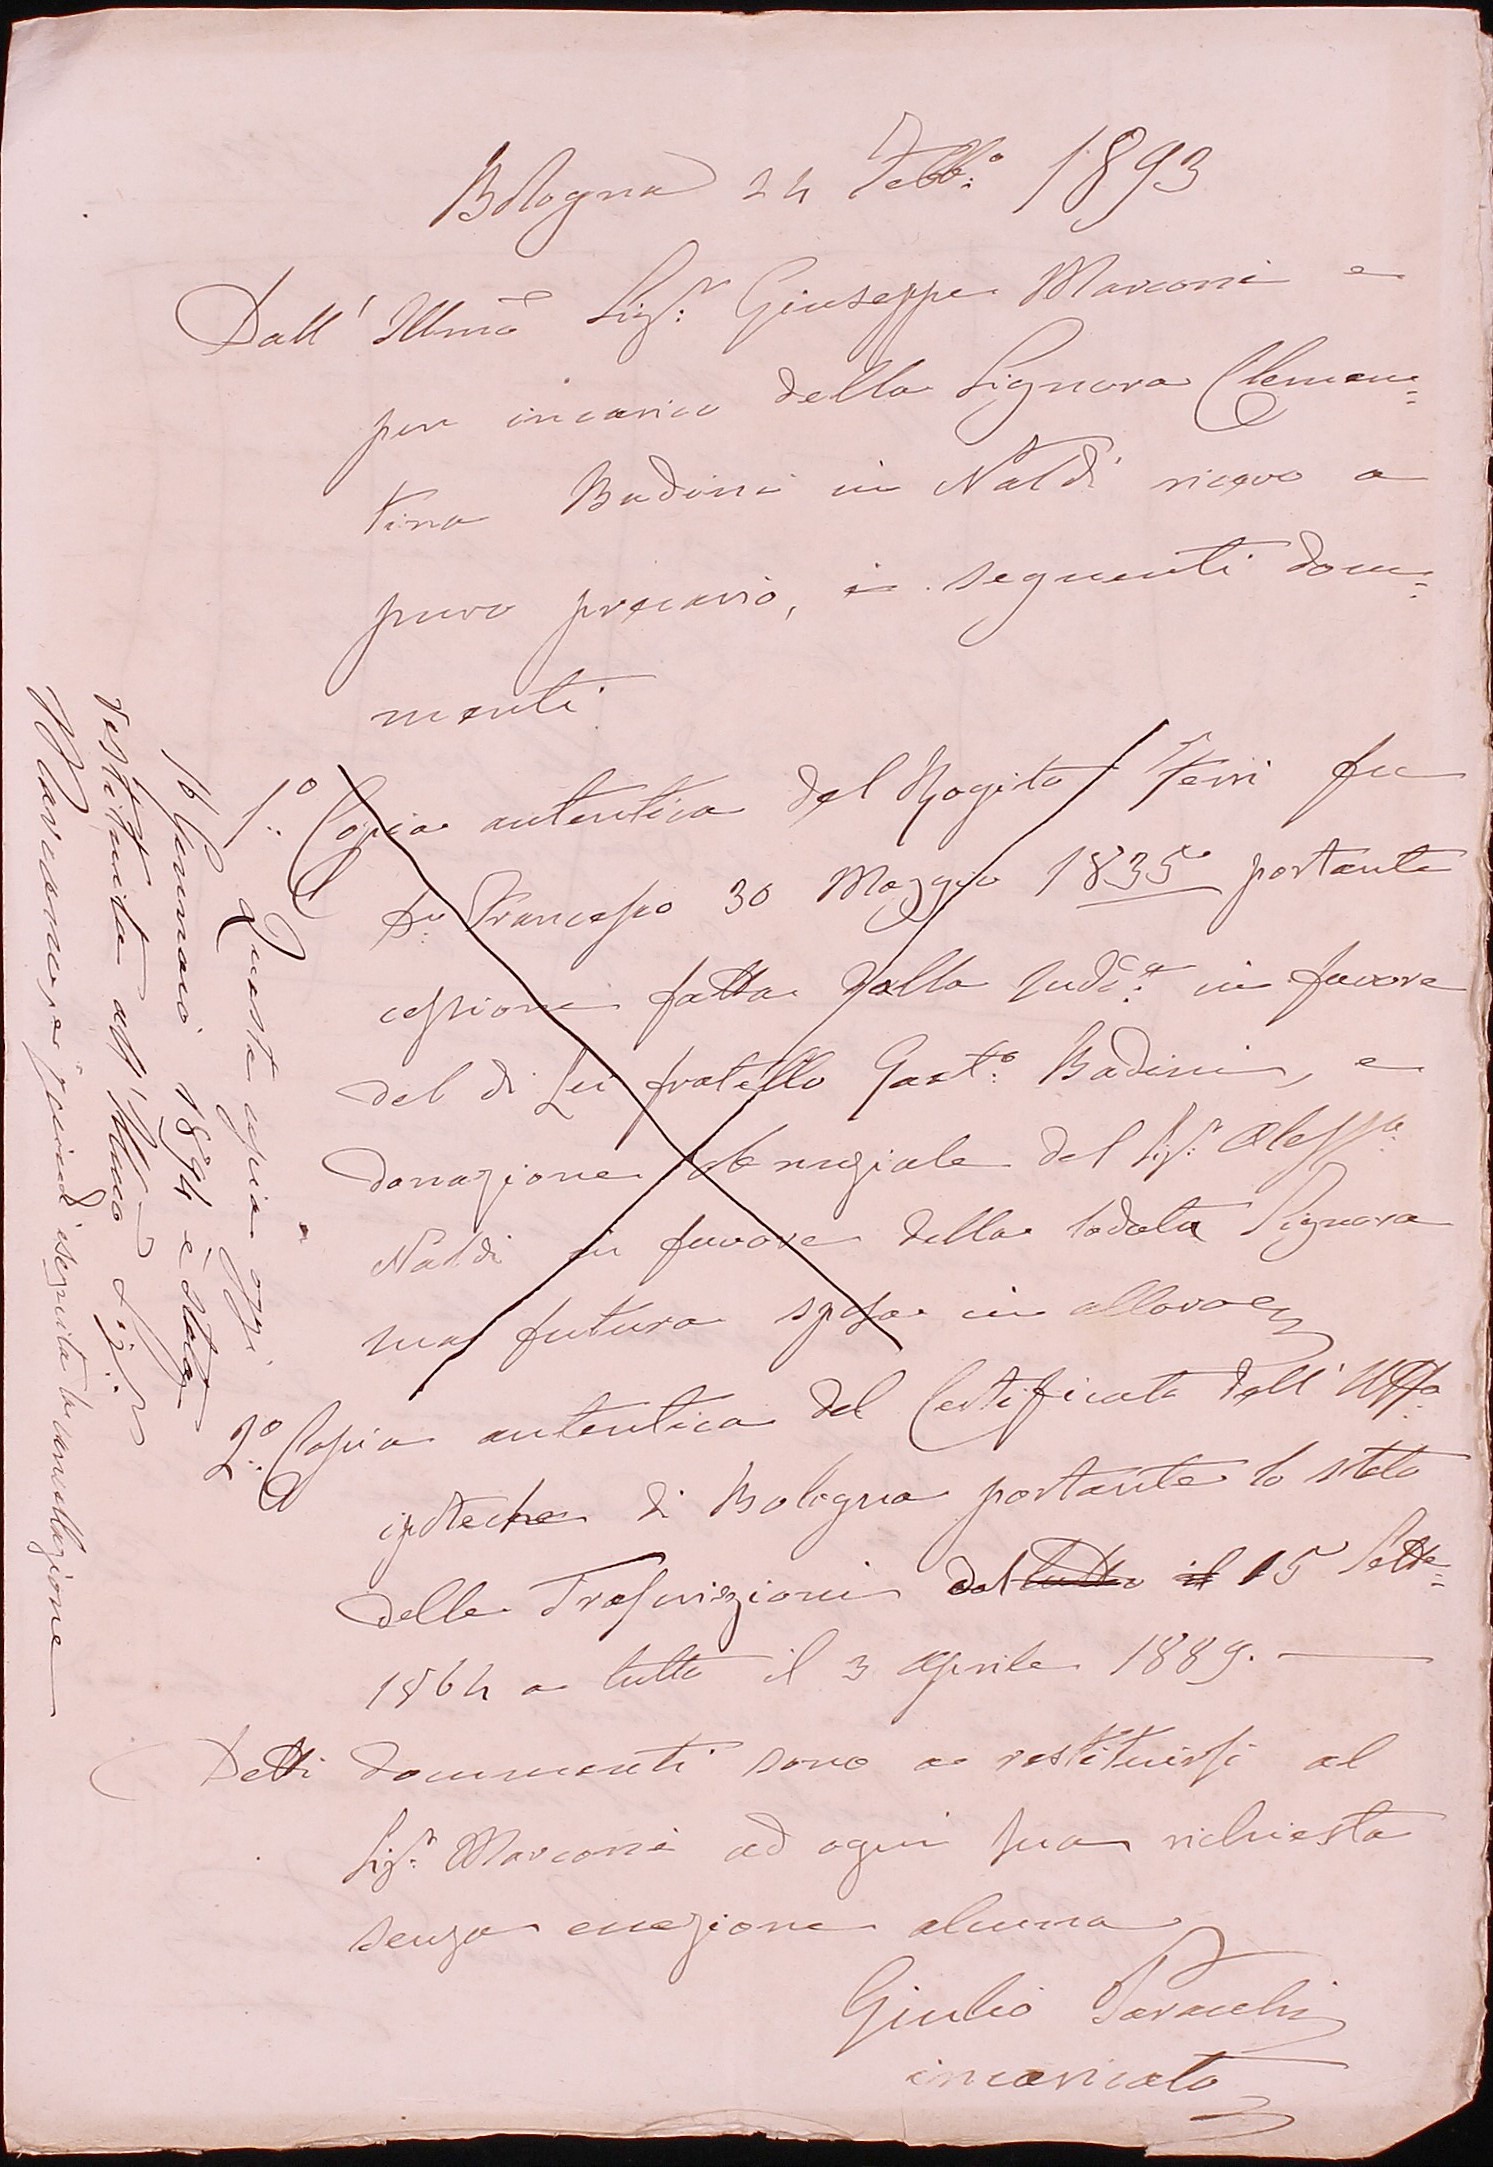 Bologna 24 Febb:º 1893
Dall' Illmo Sigr: Giuseppe Marconi e
per incarico della Signora Clemen=
tina Badini in Naldi ricevo a
puro precario, i seguenti docu=
menti
1:º Copia autentica del Rogito Ferri fu
Dr: Francesco 30 Maggio 1835 portante
cessione fatta dalla sudd:a in favore
del di Lei fratello Gaet:º Badini, e
donazione obnuziale del Sigr: Aless:o
Naldi in favore della lodata Signora
sua futura sposa in allora
2:º Copia autentica del Certificato dell' Uffo:
ipoteche di Bologna portante lo stato
delle Trascrizioni dal tutto il 15 Sette=
1864 a tutto il 3 Aprile 1889.
Detti documenti sono a restituirsi al
Sigr: Marconi ad ogni sua richiesta
senza eccezione alcuna
Giulio
incaricato
Questa copia oggi
16 Gennaio 1894 è stata
restituita all' Illmo Sigr:
Marconi, e quindi eseguita la cancellazione